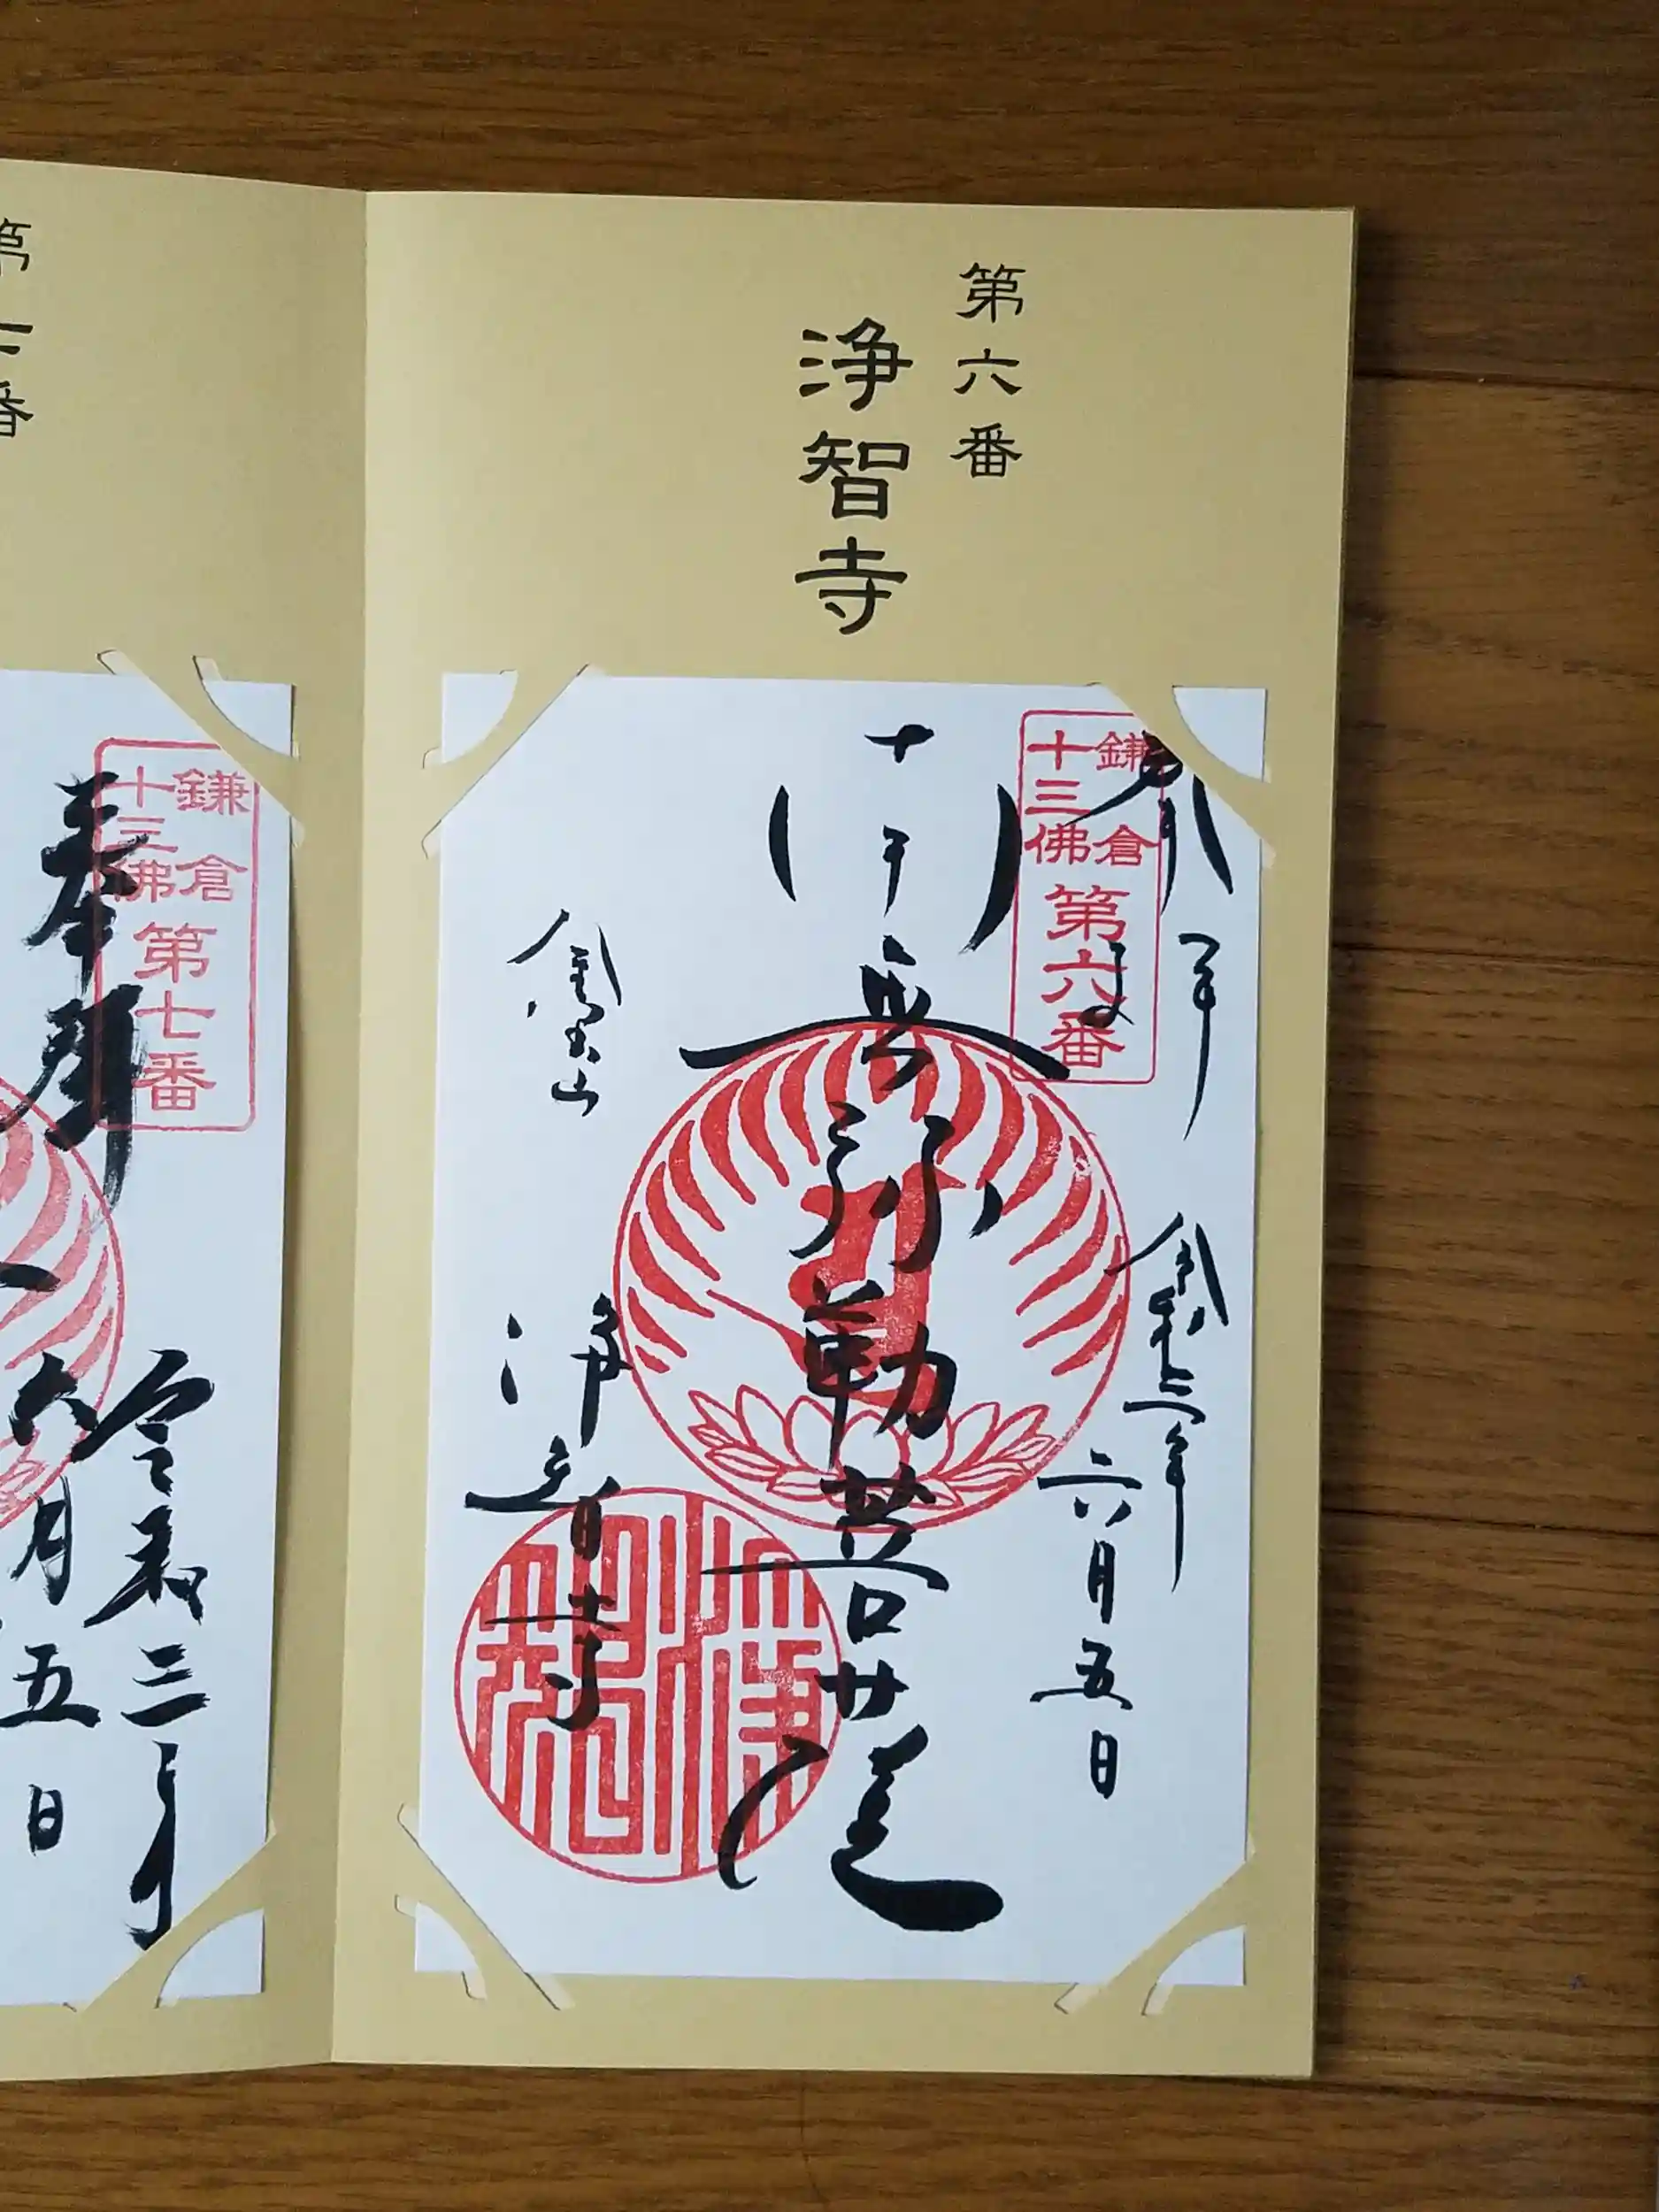 第六番
浄智寺
鎌倉
十三佛
第六番
令和三年
六月五日
弥勒菩薩
金宝山
浄智寺
第七番
鎌倉
十三佛
第七番
奉拝
令和三年
六月五日